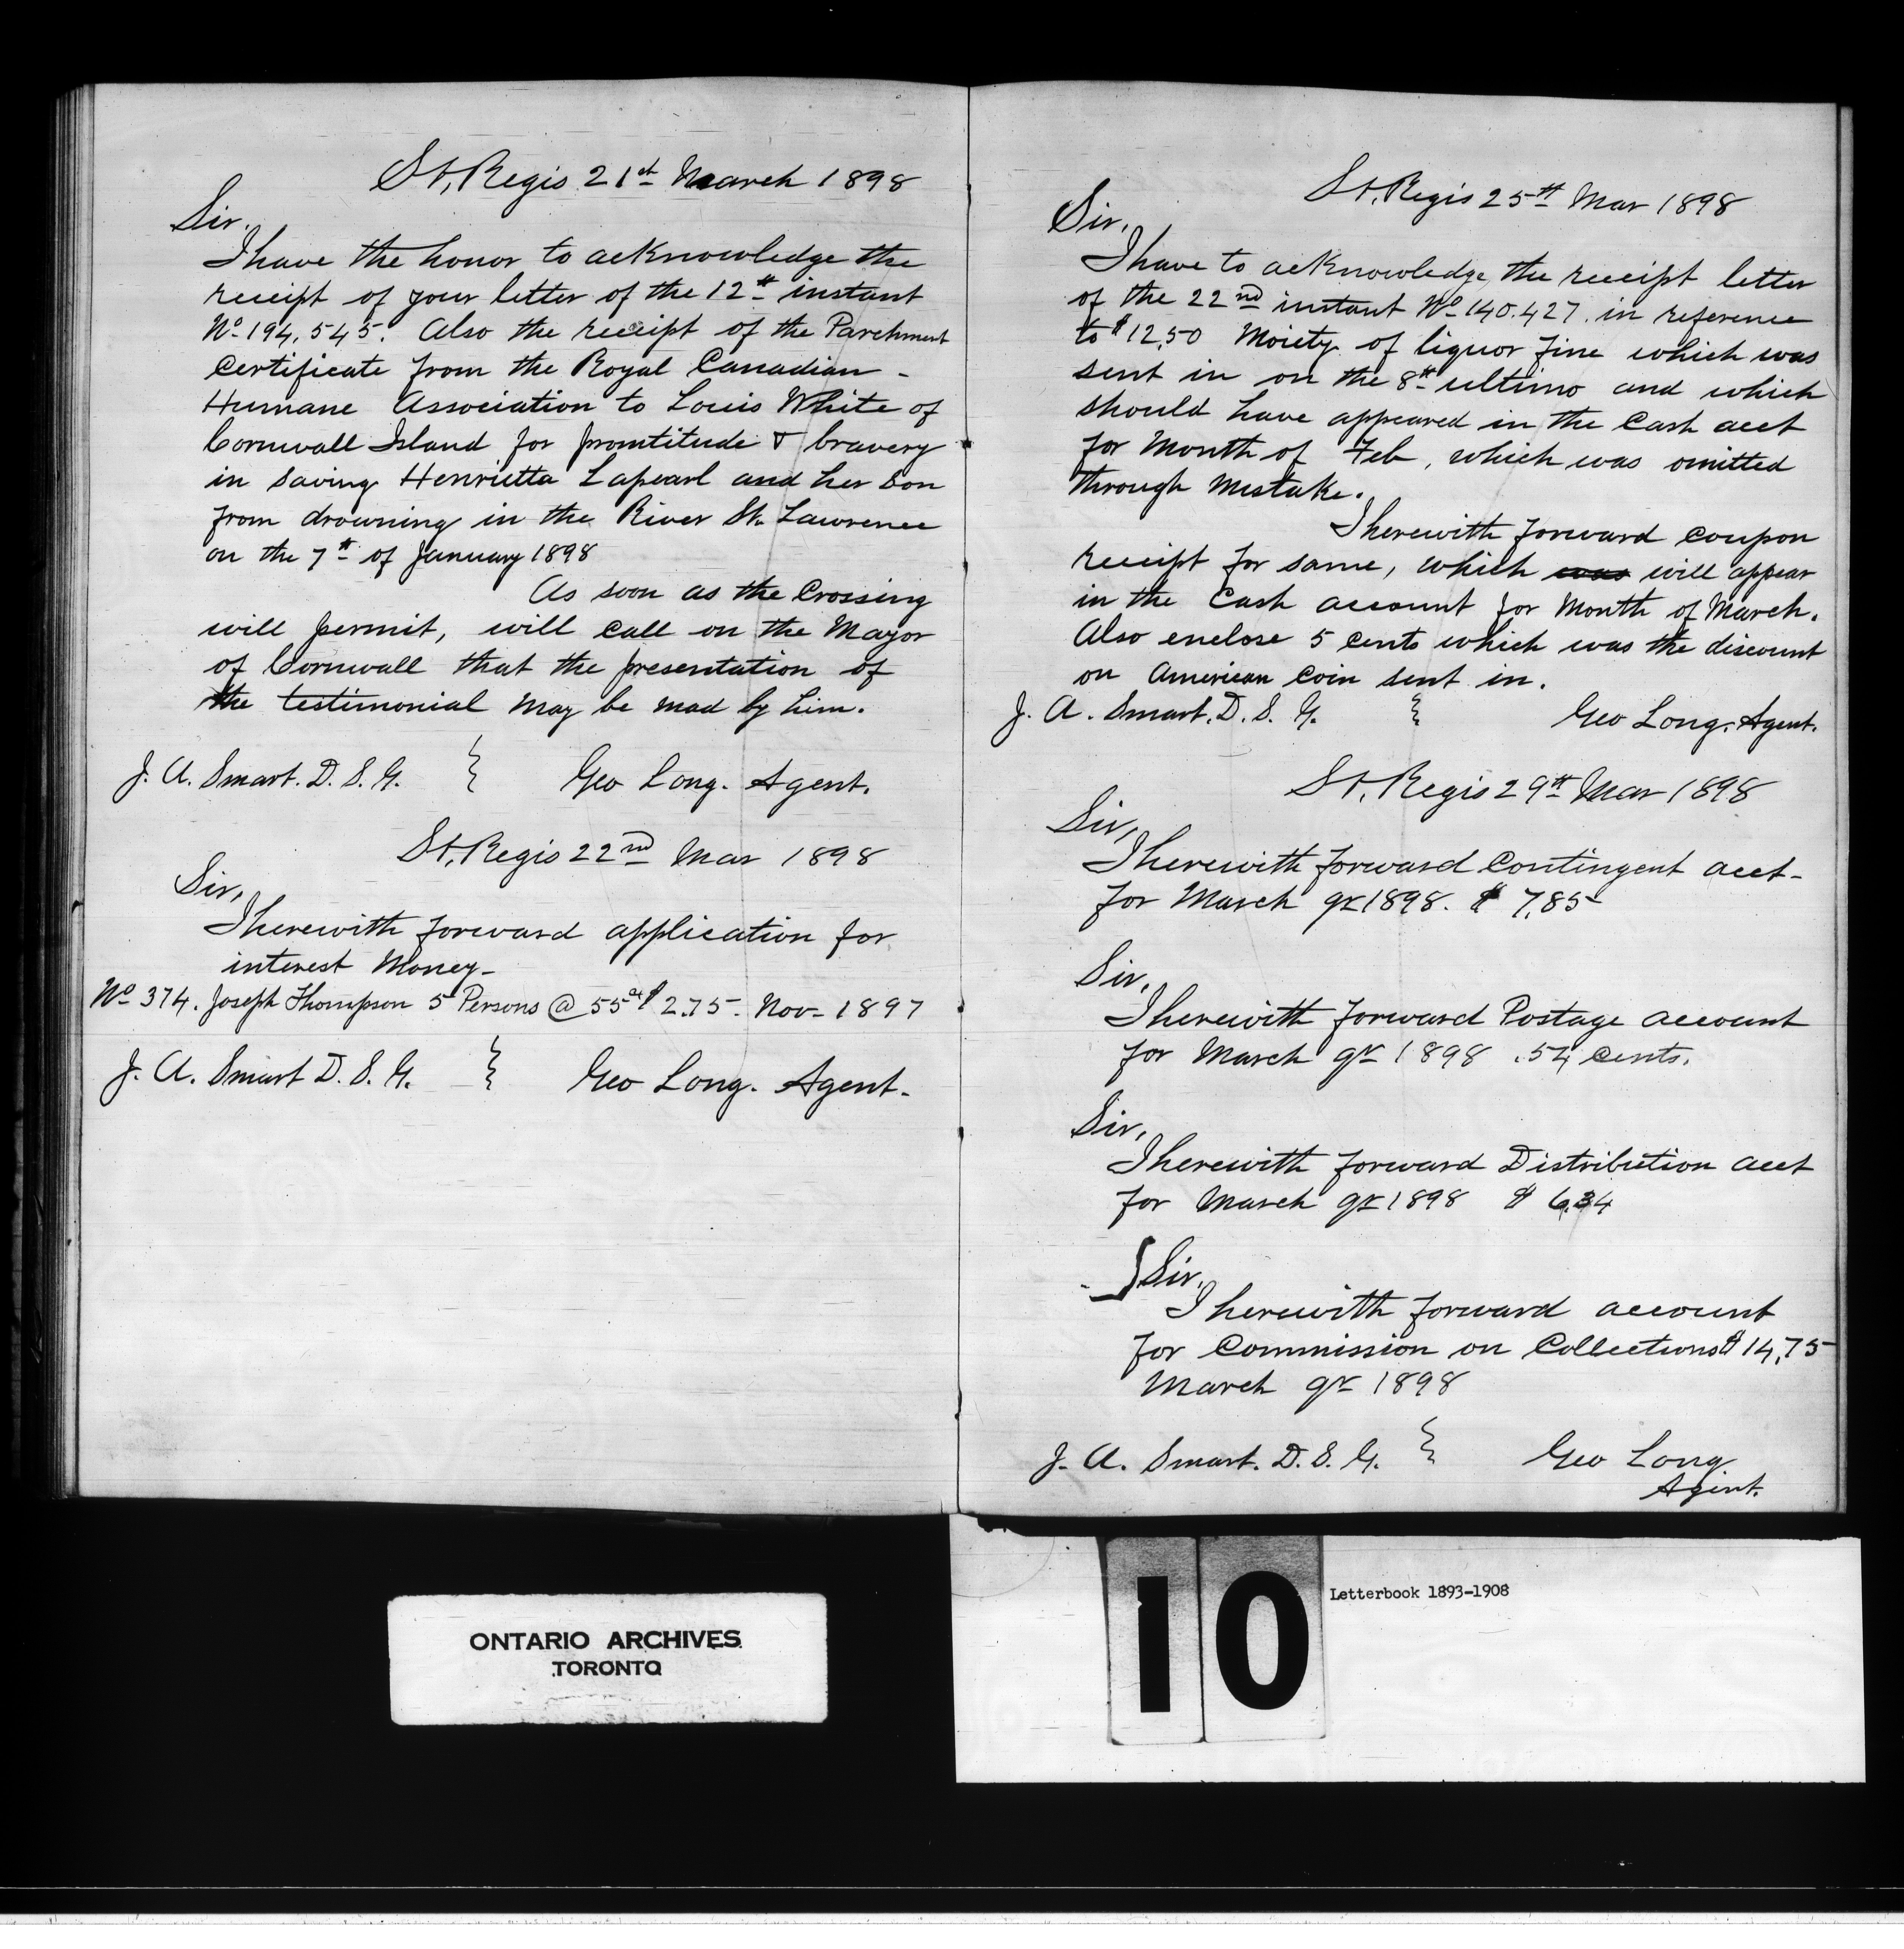 St, Regis 21st March 1898
Sir.
I have the honor to acknowledge the
receipt of your letter of the 12th instant
No 194,545. Also the receipt of the Parchment
Certificate from the Royal Canadian -
Humane Association to Louis White of
Cornwall Island for promtitude & bravery
in saving Henrietta Lapearl and her Son
from drowning in the River St. Lawrence
on the 7th of January 1898
As soon as the Crossing
will permit, will call on the Mayor
of Cornwall that the presentation of
the testimonial may be mad by him.
J. A. Smart. D. S. G. } Geo Long. Agent.
St, Regis 22nd Mar 1898
Sir,
I herewith forward application for
interest Money-
No 374. Joseph Thompson 5 Persons @ 55 cts $2.75- Nov- 1897
J. A. Smart D. S. G. } Geo Long. Agent.
St. Regis 25th Mar 1898
Sir,
I have to acknowledge the receipt letter
of the 22nd instant No 140.427. in reference
to $12,50 Moiety of liquor fine which was
sent in on the 8th ultimo and which
should have appeared in the Cash acct
for Month of Feb, which was omitted
through Mistake.
I herewith forward coupon
receipt for same, which was will appear
in the Cash account for Month of March.
Also enclose 5 cents which was the discount
on American Coin sent in.
J. A. Smart. D. S. G. } Geo Long. Agent.
St, Regis 29th Mar 1898
Sir,
I herewith forward Contingent acct-
for March qr 1898. $ 7,85-
Sir,
I herewith forward Postage account
for March qr 1898 .54 cents.
Sir,
I herewith forward Distribution acct
for March qr 1898 $ 6.34
Sir,
I herewith forward account
for Commission on Collections $14,75
March qr 1898
J. A. Smart. D. S. G. } Geo Long
Agent.
10
Letterbook 1893-1908
ONTARIO ARCHIVES
TORONTO